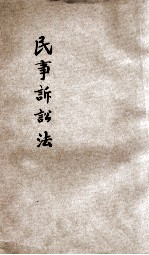 民事訴訟法